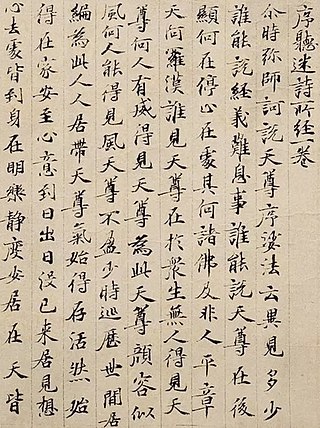 序聽迷詩所經一卷
尔時弥師訶說天尊序娑法云異見多少
誰能說經義難息事誰能說天尊在後
顯何在停心在處其何諸佛及非人平章
天阿羅漢誰見天尊在於衆生無人得見天
尊何人有威得見天尊為此天尊顏容似
風何人能得見風天尊不盈少時巡歷世間居
編為此人人居帶天尊氣始得存活然始
得在家安至心意到日出日沒已來居見想
心去處皆到身在明樂靜度安居在天皆